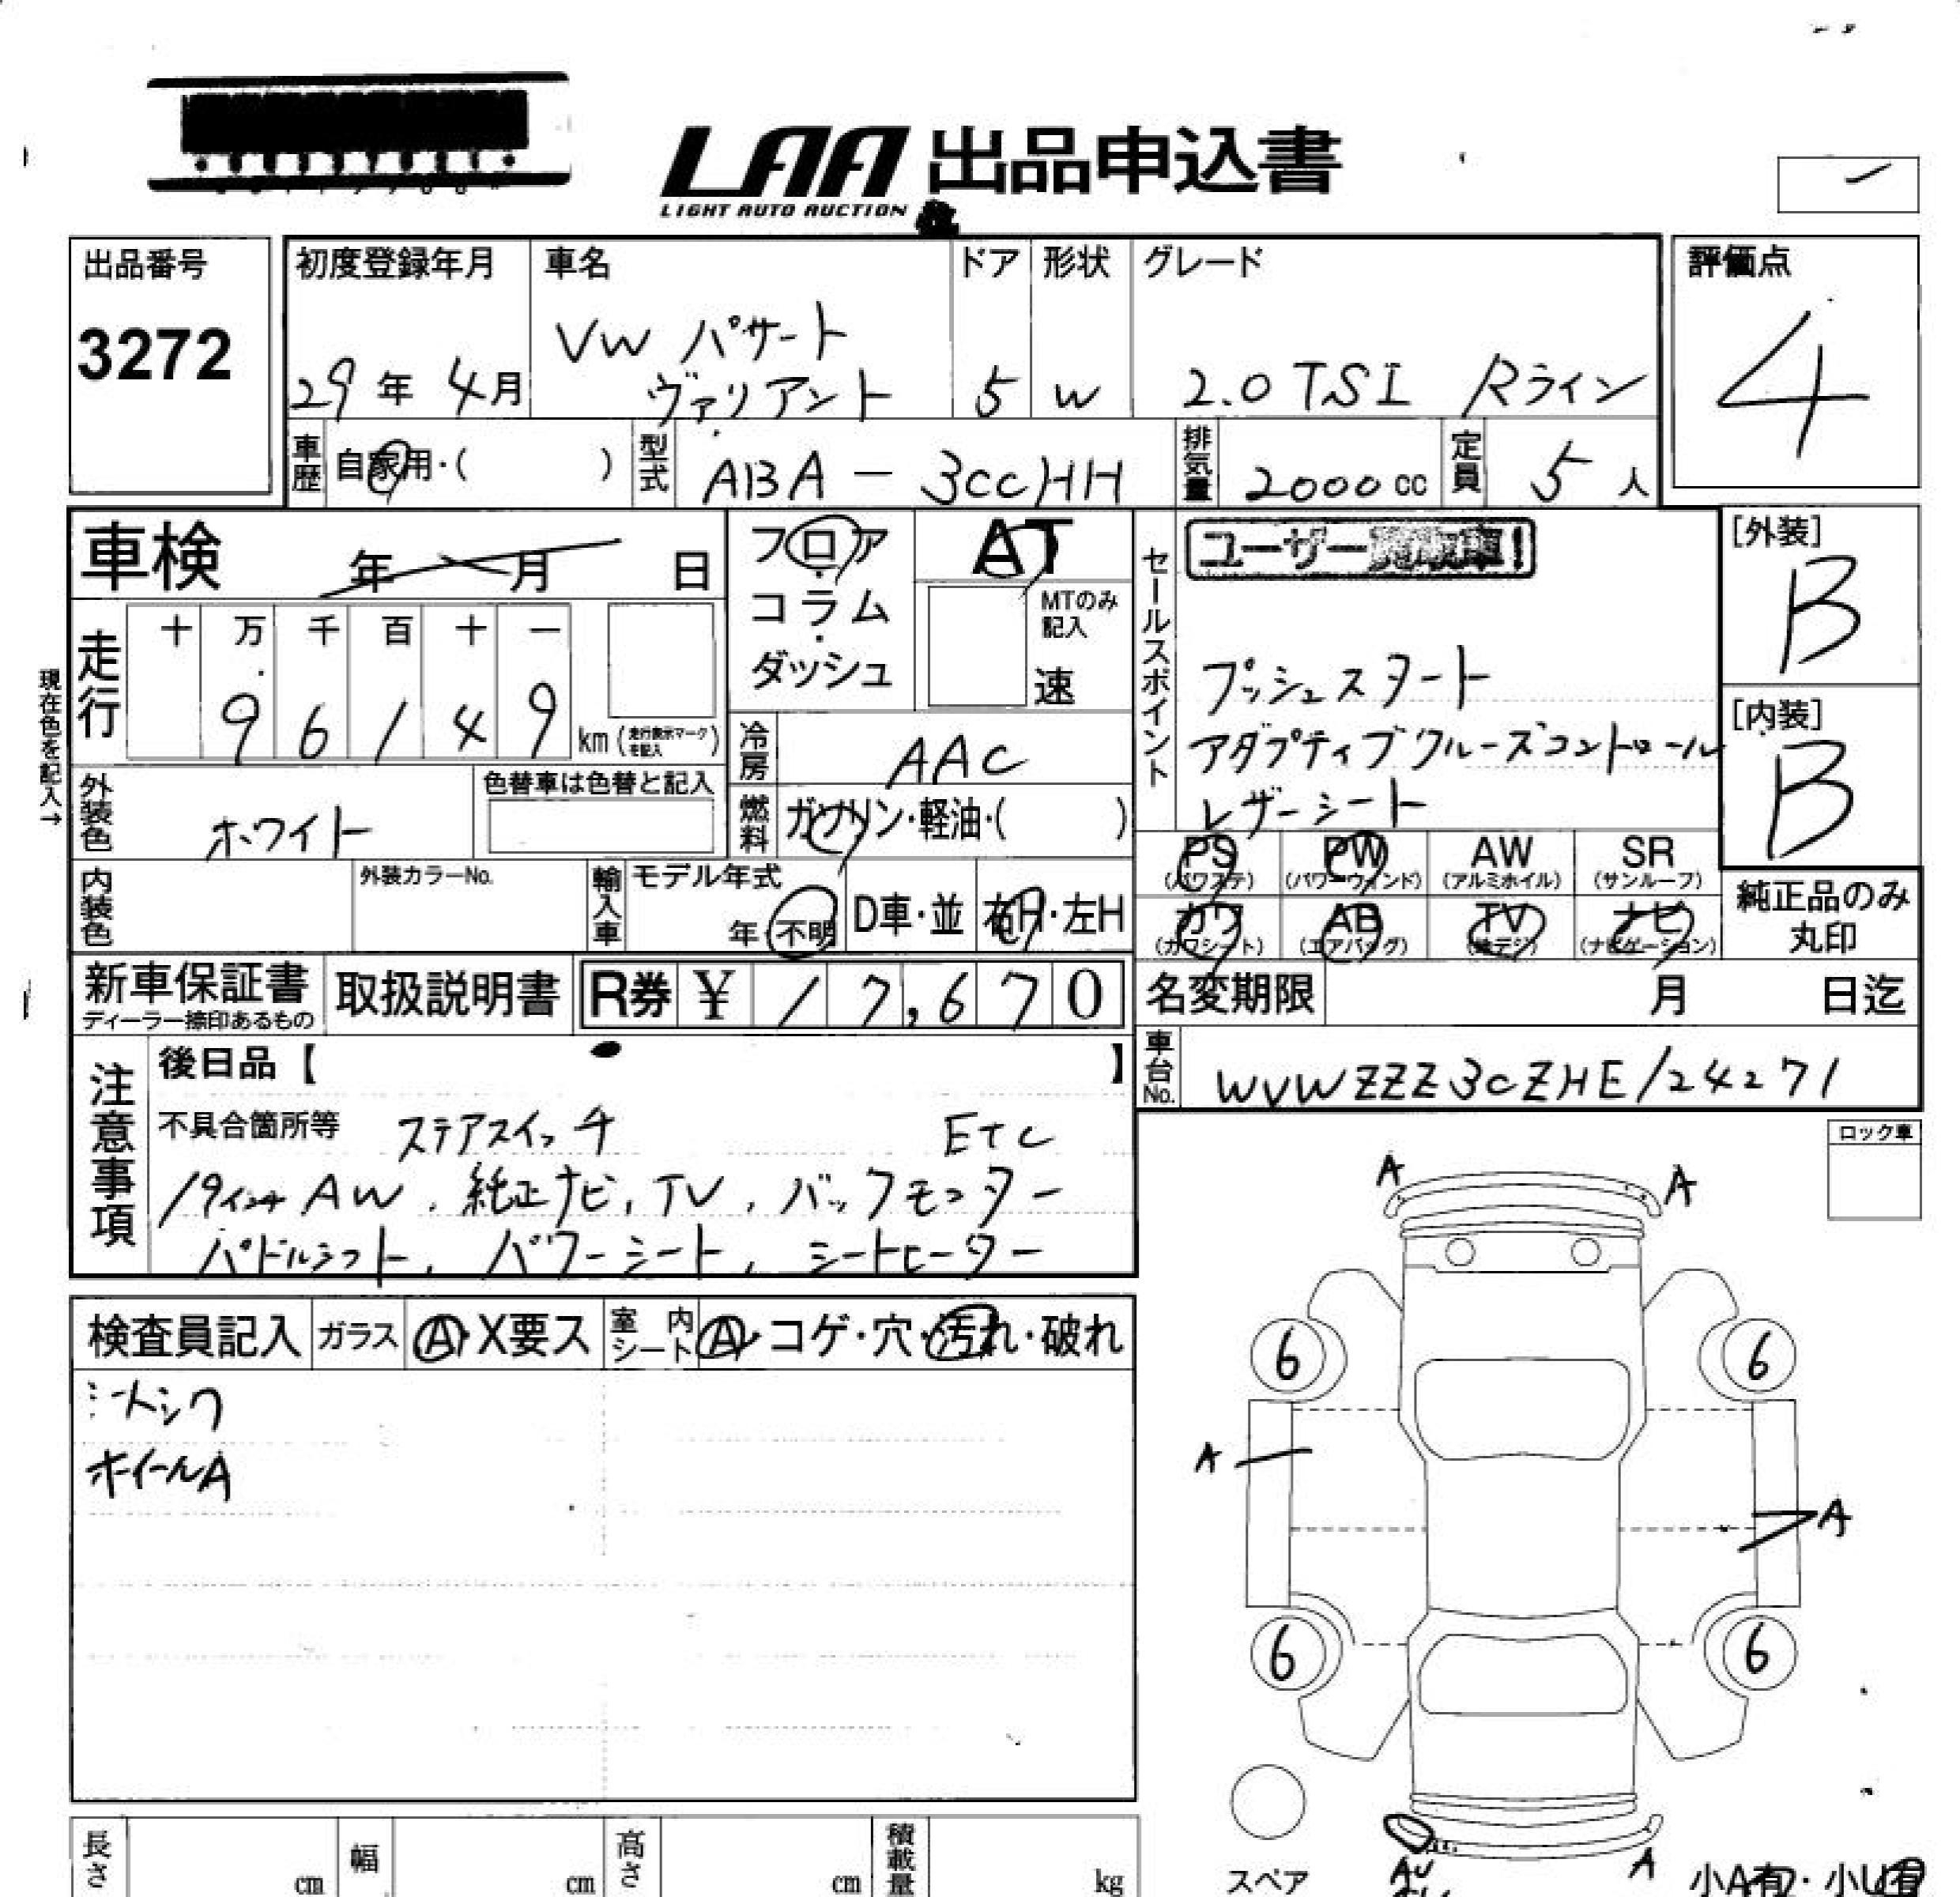 LAA 出品申込書
LIGHT AUTO AUCTION
出品番号
3272
初度登録年月
29年 4月
車名
VW パサート
ヴァリアント
ドア
5
形状
W
グレード
2.0 TSI Rライン
評価点
4
車歴
自家用・( )
型式
ABA - 3CCHH
排気量
2000 cc
定員
5 人
車検 年 月 日
フロア
・
コラム
・
ダッシュ
AT
MTのみ
記入
速
セールスポイント
ユーザー買取車!
プッシュスタート
アダプティブクルーズコントロール
レザーシート
[外装]
B
[内装]
B
現在色を記入→
走行
十 万 千 百 十 一
9 6 1 4 9 km (走行表示マークを記入)
冷房
AAC
外装色
ホワイト
色替車は色替と記入
燃料
ガソリン・軽油・( )
PS (パワステ)
PW (パワーウィンド)
AW (アルミホイル)
SR (サンルーフ)
カワ (カワシート)
AB (エアバッグ)
TV (地デジ)
ナビ (ナビゲーション)
純正品のみ
丸印
内装色
外装カラーNo.
輸入車
モデル年式
年・不明
D車・並
右H・左H
新車保証書
ディーラー捺印あるもの
取扱説明書
R券 ¥ 17,670
名変期限 月 日迄
車台No.
WVWZZZ3CZHE124271
注意事項
後日品【 】
不具合箇所等 ステアスイッチ ETC
19インチAW、純正ナビ、TV、バックモニター
パドルシフト、パワーシート、シートヒーター
ロック車
A A
6 6
A
A
6 6
検査員記入
ガラス
A・X要ス
室内シート
A・コゲ・穴・汚れ・破れ
シートシワ
ホイールA
長さ cm
幅 cm
高さ cm
積載量 kg
スペア
AU
A
小A有・小U有